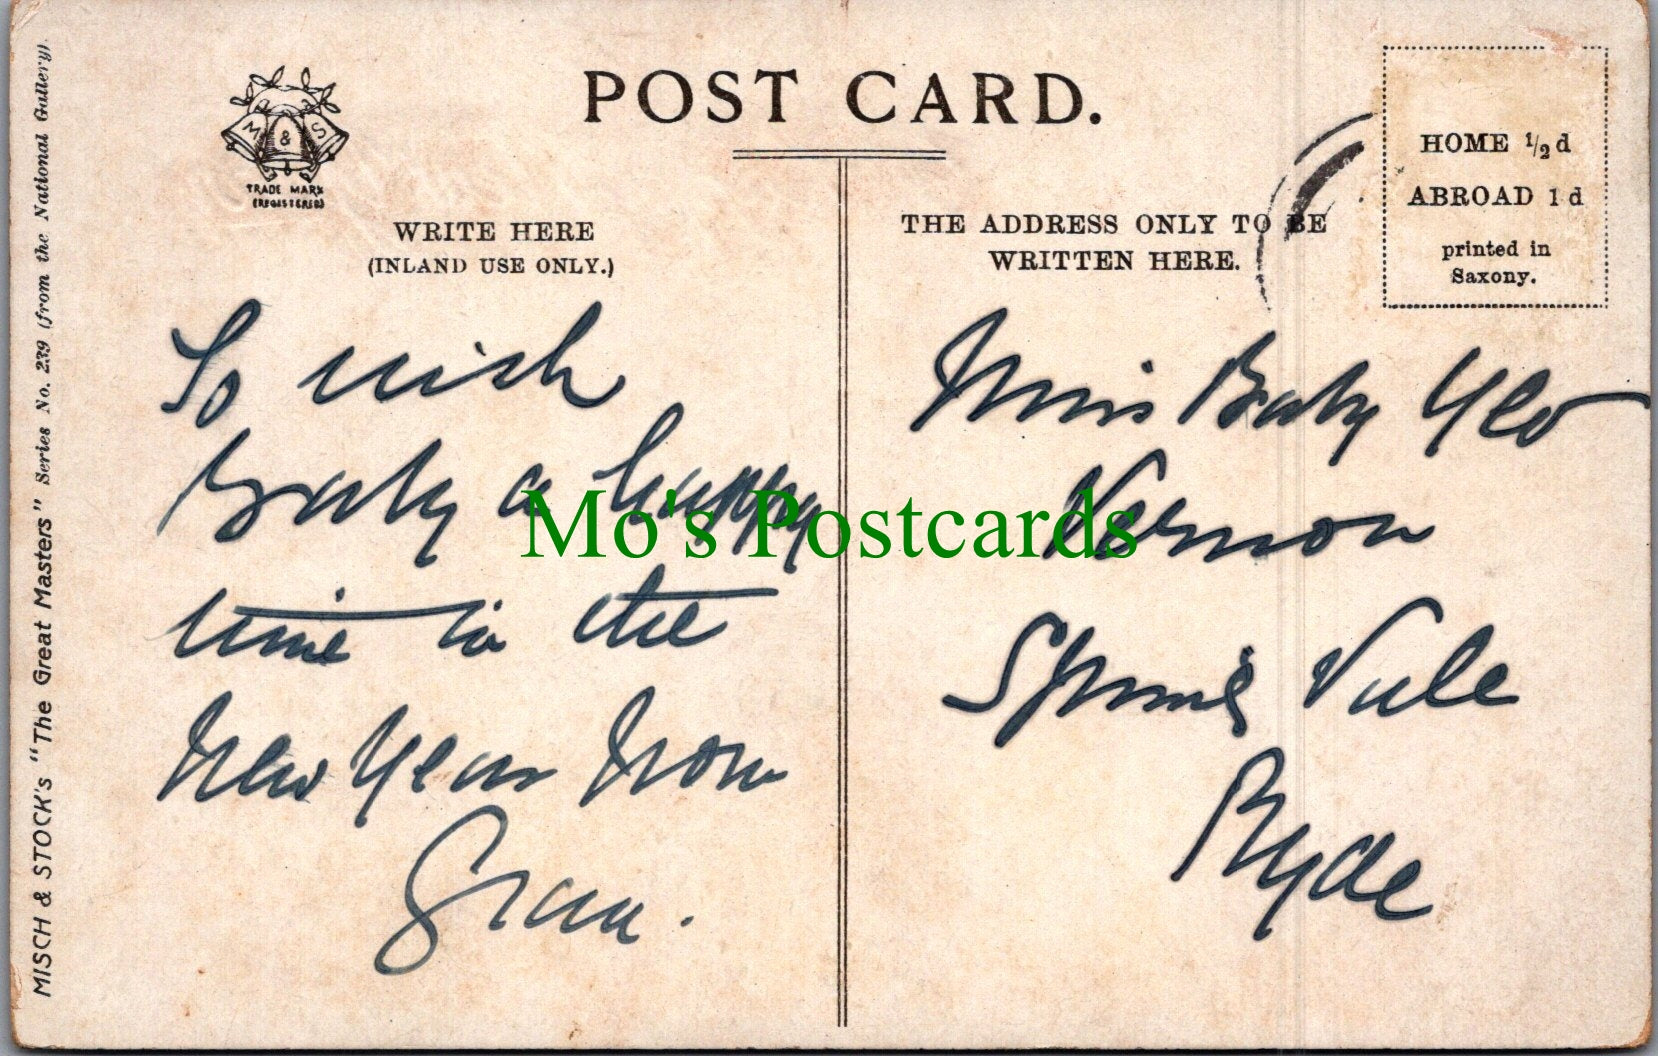 POST CARD.
M & S
TRADE MARK
(REGISTERED)
WRITE HERE
(INLAND USE ONLY.)
THE ADDRESS ONLY TO BE
WRITTEN HERE.
HOME ½d
ABROAD 1d
printed in
Saxony.
MISCH & STOCK's "The Great Masters" Series No. 239 (from the National Gallery).
To wish
Baby a happy
time in the
New Year from
Gran.
Miss Baby Yeo
Vernon
Spring Vale
Ryde
Mo's Postcards